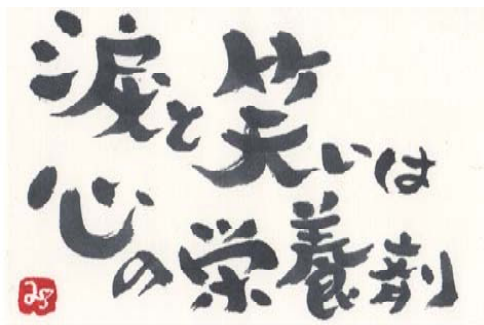 涙と笑いは
心の栄養剤